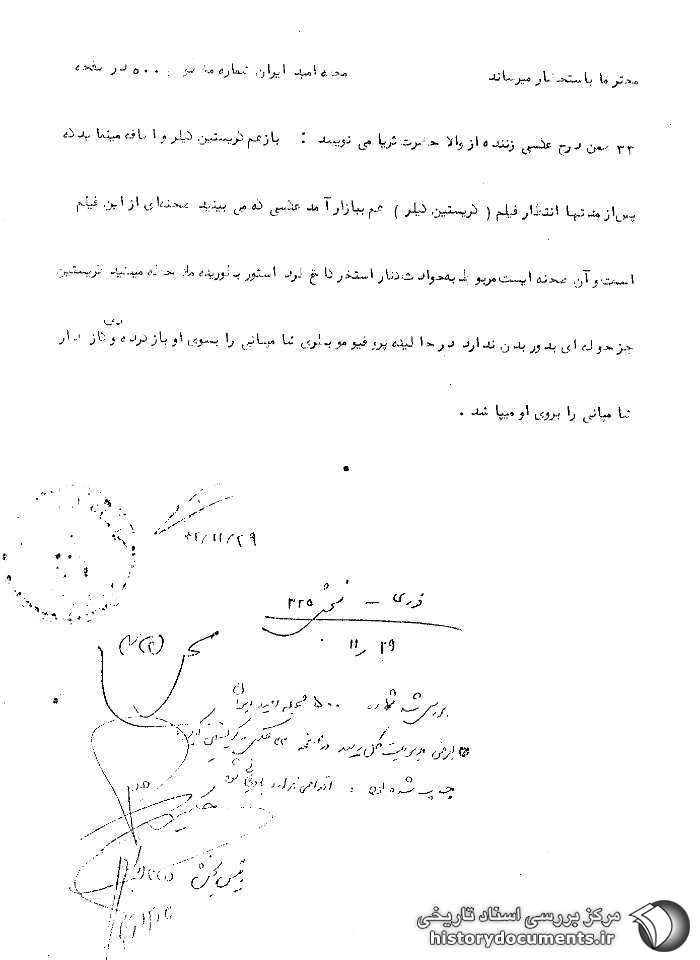 محترما باستحضار میرساند مجله امید ایران شماره ۵۰۰ در صفحه
۳۳ ضمن درج عکسی زننده از والا حضرت ثریا می نویسد : بازهم کریستین کیلر و اضافه مینماید که
پس از مدتها انتظار فیلم ( کریستین کیلر ) هم ببازار آمد عکسی که می بینید صحنه‌ای از این فیلم
است و آن صحنه ایست مربوط به حوادث کنار استخر کاخ لرد استور بطوریکه ملاحظه میکنید کریستین
جز حوله ای بدور بدن ندارد در حالیکه پروفیومو بطری شامپانی را بسوی او باز کرده و گاز دار
شامپانی را بروی او میپاشد .
۴۲/۱۱/۲۹
فوری - بخش ۳۲۵
۲۹ / ۱۱
بررسی شد شماره ۵۰۰ مجله امید ایران
بعرض مدیریت کل رسید در صفحه ۳۳ عکس کریستین کیلر
چاپ شده است اقدامی ندارد بایگانی شود
رئیس بخش
مرکز بررسی اسناد تاریخی
historydocuments.ir